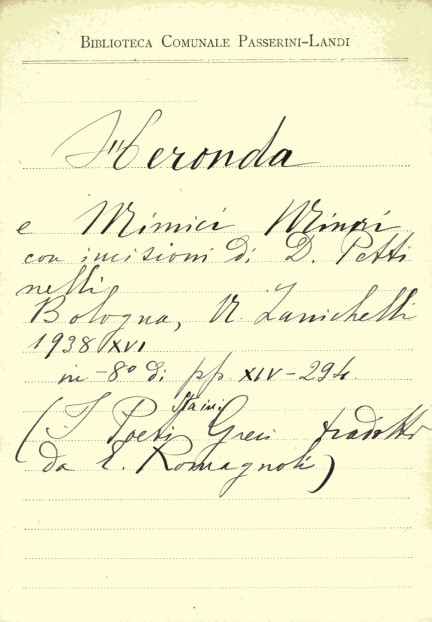 BIBLIOTECA COMUNALE PASSERINI-LANDI
Heronda
e Mimici Minori
con incisioni di D. Petti
nelli
Bologna, N. Zanichelli
1938 XVI
in-8° di pp. XIV-294.
(I Poeti Greci tradotti
da E. Romagnoli)